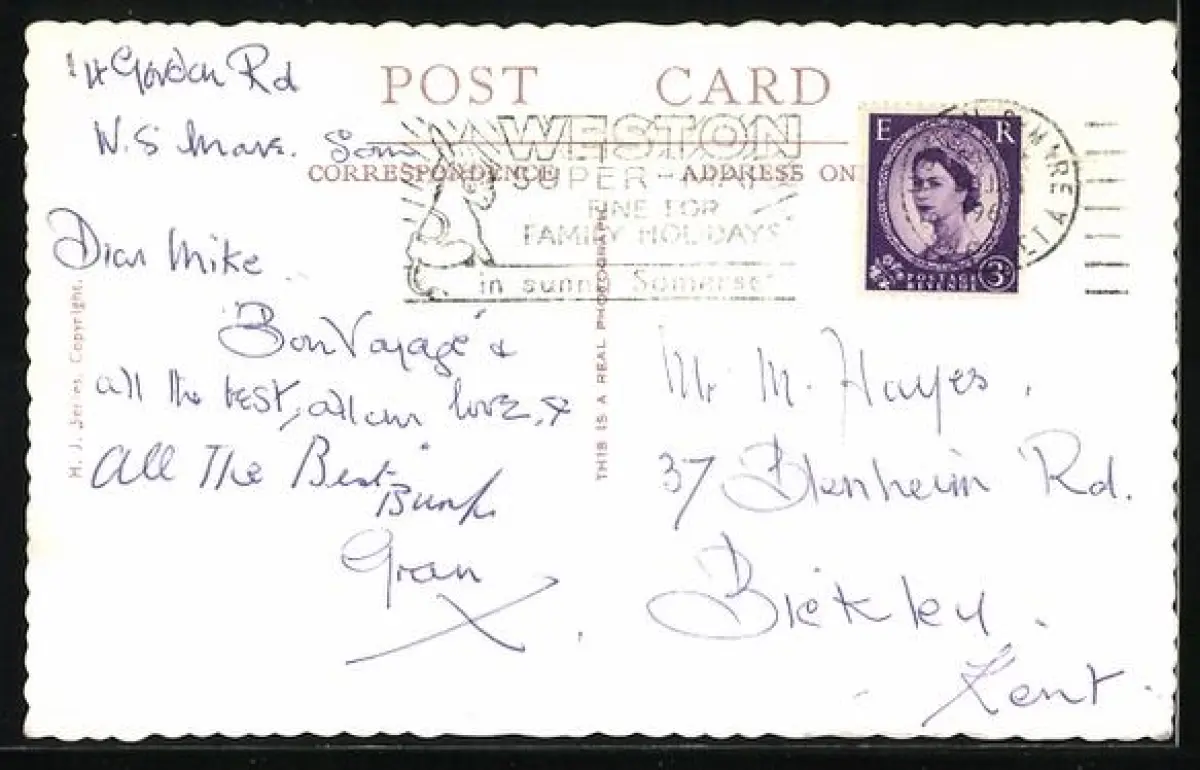 14 Gordon Rd
W.S Mare. Som
POST CARD
CORRESPONDENCE ADDRESS ON
WESTON
SUPER-MARE
FINE FOR
FAMILY HOLIDAYS
in sunny Somerset
E R
POSTAGE
REVENUE
3D
Dear Mike
"Bon Voyage" &
all the best, all our love, &
All The Best"
Gran
X
H. J. Series. Copyright.
THIS IS A REAL PHOTOGRAPH
Mr M. Hayes,
37 Blenheim Rd.
Bickley.
Kent.